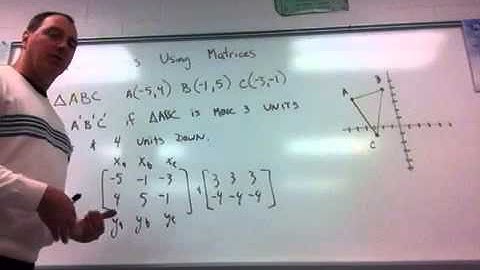 s Using Matrices
△ABC A(-5,4) B(-1,5) C(-3,-1)
A'B'C' if △ABC is move 3 units
& 4 units down.
xₐ x_b x_c
[-5 -1 -3
4 5 -1] + [3 3 3
-4 -4 -4]
yₐ y_b y_c
A
B
C